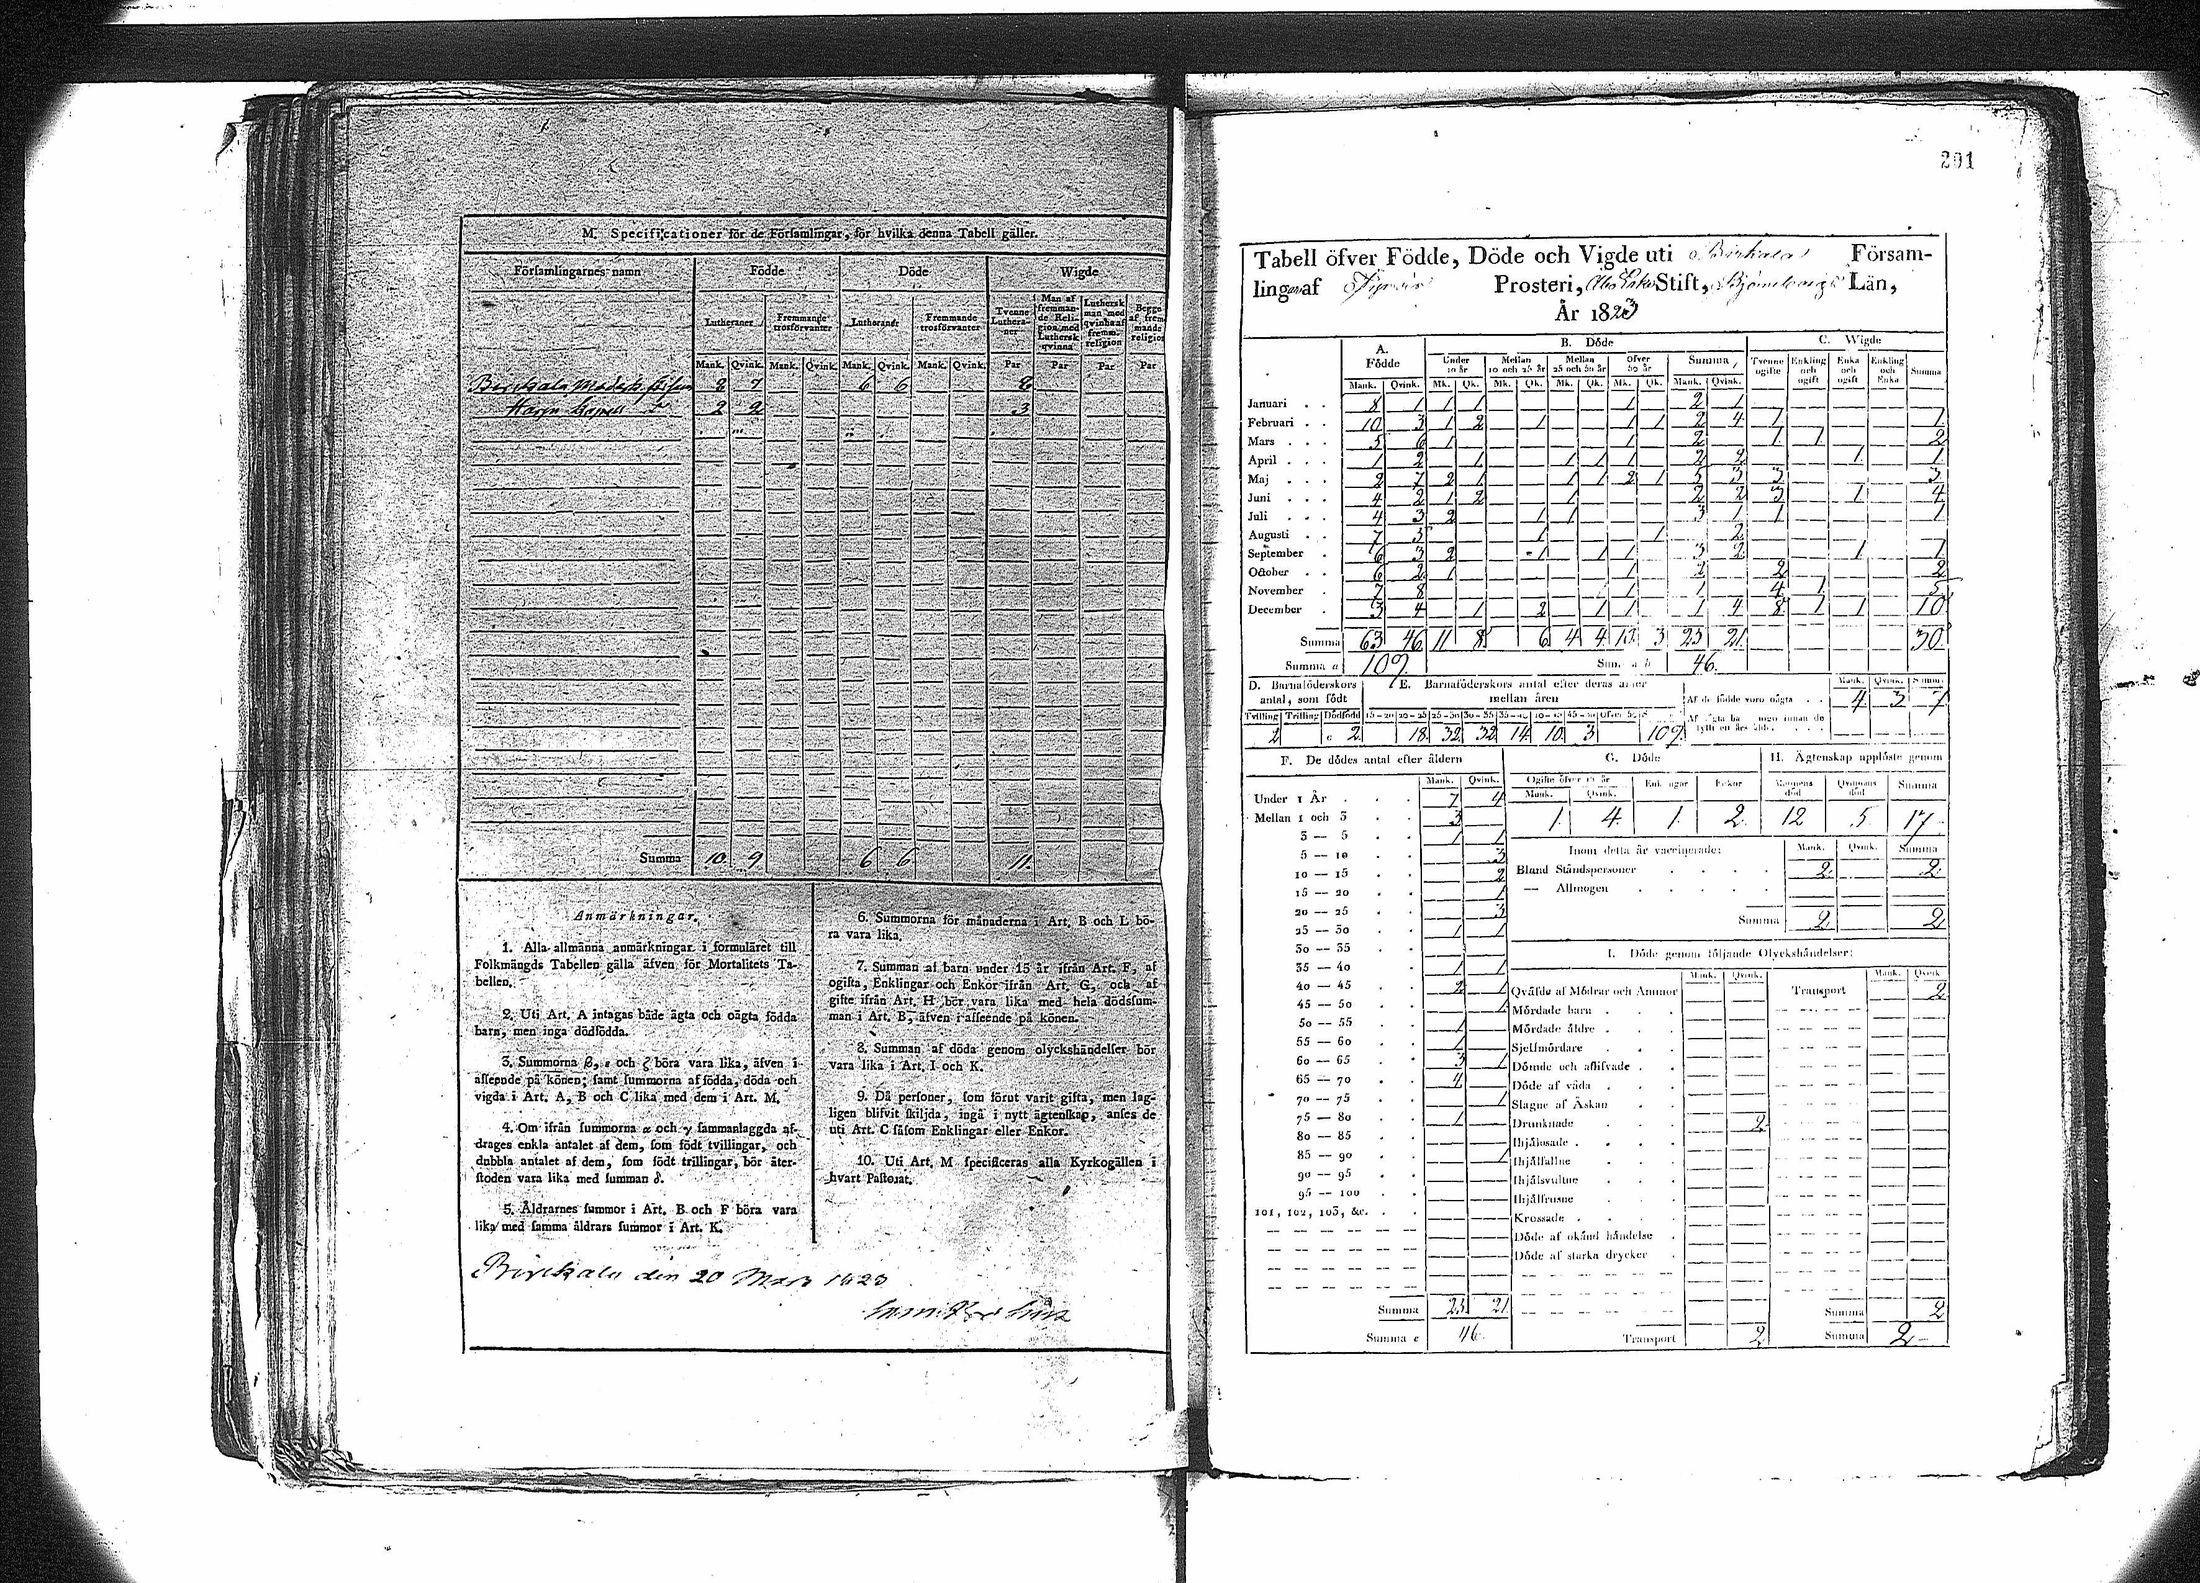 M. Specificationer för de Församlingar, för hvilka denna Tabell gäller.
Församlingarnes namn Födde Döde Wigde
Lutheraner Fremmande trosförvanter Lutheraner Fremmande trosförvanter Tvenne Lutheraner Man af fremmande Religion med Luthersk qvinna Luthersk man med qvinna af fremm. religion Begge af fremmande religion
Mank. Qvink. Mank. Qvink. Mank. Qvink. Mank. Qvink. Par Par Par Par
Birckala 8 7 6 6 8
2 2 3
Summa 10 9 6 6 11
Anmärkningar.
1. Alla allmänna anmärkningar i formuläret till
Folkmängds Tabellen gälla äfven för Mortalitets Ta-
bellen.
2. Uti Art. A intagas både ägta och oägta födda
barn, men inga dödfödda.
3. Summorna β, ε och ζ böra vara lika, äfven i
afseende på könen; samt summorna af födda, döda och
vigda i Art. A, B och C lika med dem i Art. M.
4. Om ifrån summorna α och γ sammanlaggda af-
drages enkla antalet af dem, som födt tvillingar, och
dubbla antalet af dem, som födt trillingar, bör åter-
stoden vara lika med summan δ.
5. Åldrarnes summor i Art. B och F böra vara
lika med samma åldrars summor i Art. K.
6. Summorna för månaderna i Art. B och L bö-
ra vara lika.
7. Summan af barn under 15 år ifrån Art. F, af
ogifta, Enklingar och Enkor ifrån Art. G, och af
gifte ifrån Art. H bör vara lika med hela dödssum-
man i Art. B, äfven i afseende på könen.
8. Summan af döda genom olyckshändelser bör
vara lika i Art. I och K.
9. Då personer, som förut varit gifta, men lag-
ligen blifvit skiljda, ingå i nytt ägtenskap, anses de
uti Art. C såsom Enklingar eller Enkor.
10. Uti Art. M specificeras alla Kyrkogällen i
hvart Pastorat.
Birckala den 20 Mars 1823
201
Tabell öfver Födde, Döde och Vigde uti Birkala Försam-
lingar af Prosteri, Åbo Erke Stift, Björneborgs Län,
År 1823
A. Födde B. Döde C. Wigde
Under 10 år Mellan 10 och 25 år Mellan 25 och 50 år Öfver 50 år Summa Tvenne ogifte Enkling och ogift Enka och ogift Enkling och Enka Summa
Mank. Qvink. Mk. Qk. Mk. Qk. Mk. Qk. Mk. Qk. Mank. Qvink.
Januari 8 1 1 1 1 2 1
Februari 10 3 1 2 1 1 1 2 4 1 1
Mars 5 6 1 1 2 1 1 2
April 1 2 1 1 1 1 2 2 1 1
Maj 2 7 2 1 1 1 2 1 5 3 3 3
Juni 4 2 1 2 1 2 2 3 1 4
Juli 4 3 2 1 1 3 1 1 1
Augusti 7 5 1 1 2
September 6 3 2 1 1 1 3 2 1 1
October 6 2 1 1 2 2 2
November 7 8 1 1 4 1 5
December 3 4 1 2 1 1 1 4 8 1 1 10
Summa 63 46 11 8 6 4 4 3 21 30
Summa a 109 46
D. Barnaföderskors antal, som födt
E. Barnaföderskors antal efter deras ålder mellan åren
Mank. Qvink. Summa
Af de födde voro oägta 4 3 7
Tvilling Trilling Dödfödd 15—20 20—25 25—30 30—35 35—40 40—45 45—50
2 2 18 32 32 14 10 3 109
F. De dödes antal efter åldern G. Döde H. Ägtenskap upplöste genom
Mank. Qvink. Ogifte öfver 15 år Enklingar Enkor Mannens död Qvinnans död Summa
Mank. Qvink.
1 4 1 2 12 5 17
Under 1 År 7 4
Mellan 1 och 3 3
3 — 5 1 1
5 — 10 3
10 — 15 2
15 — 20 1
20 — 25 3
25 — 30 1 1
30 — 35
35 — 40 1 1
40 — 45 2 1
45 — 50 1
50 — 55 1
55 — 60 1
60 — 65 3 1
65 — 70 4
70 — 75 1
75 — 80 1
80 — 85
85 — 90 1
90 — 95
95 — 100
101, 102, 103, &c.
Summa 21
Summa e 46
Inom detta år vaccinerade: Mank. Qvink. Summa
Bland Ståndspersoner 2 2
— Allmogen
Summa 2 2
I. Döde genom följande Olyckshändelser:
Mank. Qvink. Mank. Qvink.
Qväfde af Mödrar och Ammor Transport 2
Mördade barn
Mördade äldre
Sjelfmördare
Dömde och aflifvade
Döde af våda
Slagne af Åskan
Drunknade 2
Ihjälosade
Ihjälfallne
Ihjälsvultne
Ihjälfrusne
Krossade
Döde af okänd händelse
Döde af starka drycker
Summa 2
Transport 2 Summa 2